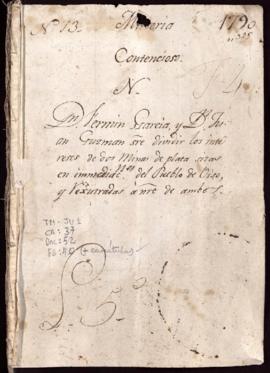 N.º 13. Mineria 1790
Contencioso.
N.
Dn. Fermin Garcia, y Dn. Ju-
an Guzman sre dividir los inte-
reses de dos Minas de plata sitas
en immediat.nes del Pueblo de
y Rexistradas a nre de ambos.
TM-JU 1
CA: 37
Doc: 52
(+ carátula)